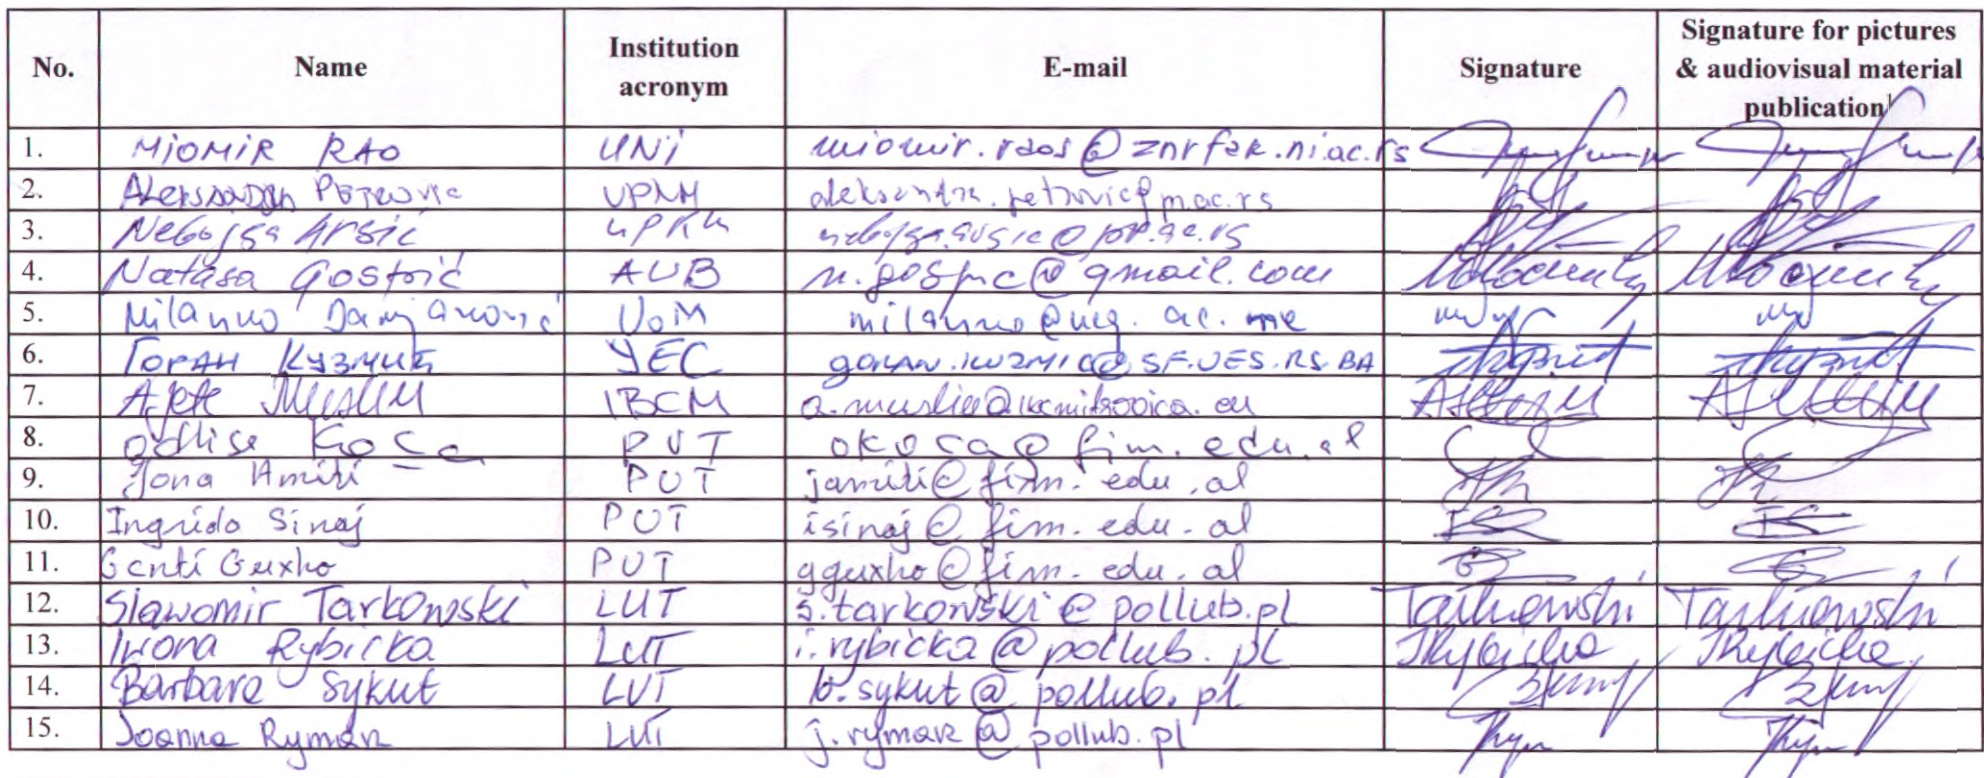 No. Name Institution acronym E-mail Signature Signature for pictures & audiovisual material publication
1. MIOMIR RAO UNI miomir.raos@znrfak.ni.ac.rs
2. Aleksandra Petrovic UPKM aleksandra.petrovic@pr.ac.rs
3. Nebojsa Arsić UPKM nebojsa.arsic@pr.ac.rs
4. Natasa Gospić AUB n.gospic@gmail.com
5. Milanko Damjanović UoM milanko@ucg.ac.me
6. Горан Кузмић УЕС GORAN.KUZMIC@SF.UES.RS.BA
7. Ajete Musliu IBCM a.musliu@ibcmitrovica.eu
8. Odhise Koça PUT okoca@fim.edu.al
9. Jona Amiti PUT jamiti@fim.edu.al
10. Ingrida Sinaj PUT isinaj@fim.edu.al
11. Genti Guxho PUT gguxho@fim.edu.al
12. Sławomir Tarkowski LUT s.tarkowski@pollub.pl Tarkowski Tarkowski
13. Iwona Rybicka LUT i.rybicka@pollub.pl IRybicka IRybicka
14. Barbara Sykut LUT b.sykut@pollub.pl
15. Joanna Rymarz LUT j.rymarz@pollub.pl